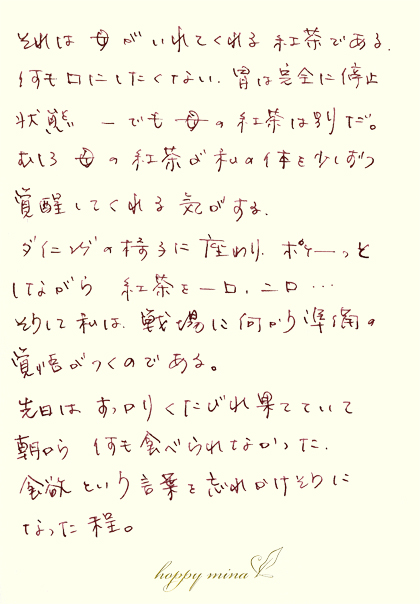 それは 母がいれてくれる 紅茶である.
何も口にしたくない. 胃は完全に停止
状態 ー でも 母の 紅茶は別だ。
むしろ 母の 紅茶が 私の体を少しずつ
覚醒してくれる 気がする.
ダイニングの椅子に 座わり. ボケーっと
しながら 紅茶を一口, 二口 …
そして 私は, 戦場に 何かう準備の
覚悟がつくのである。
先日は すっかり くたびれ果てていて
朝から 何も食べられなかった.
食欲 という 言葉を 忘れかけそうに
なった 程。
happy mina